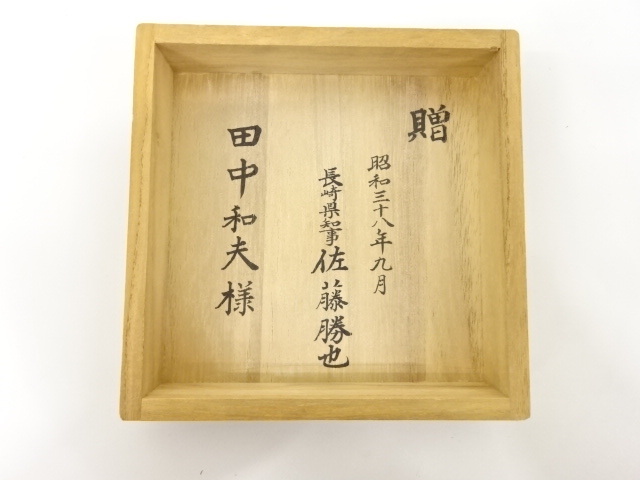 贈
昭和三十八年九月
長崎県知事 佐藤勝也
田中和夫様